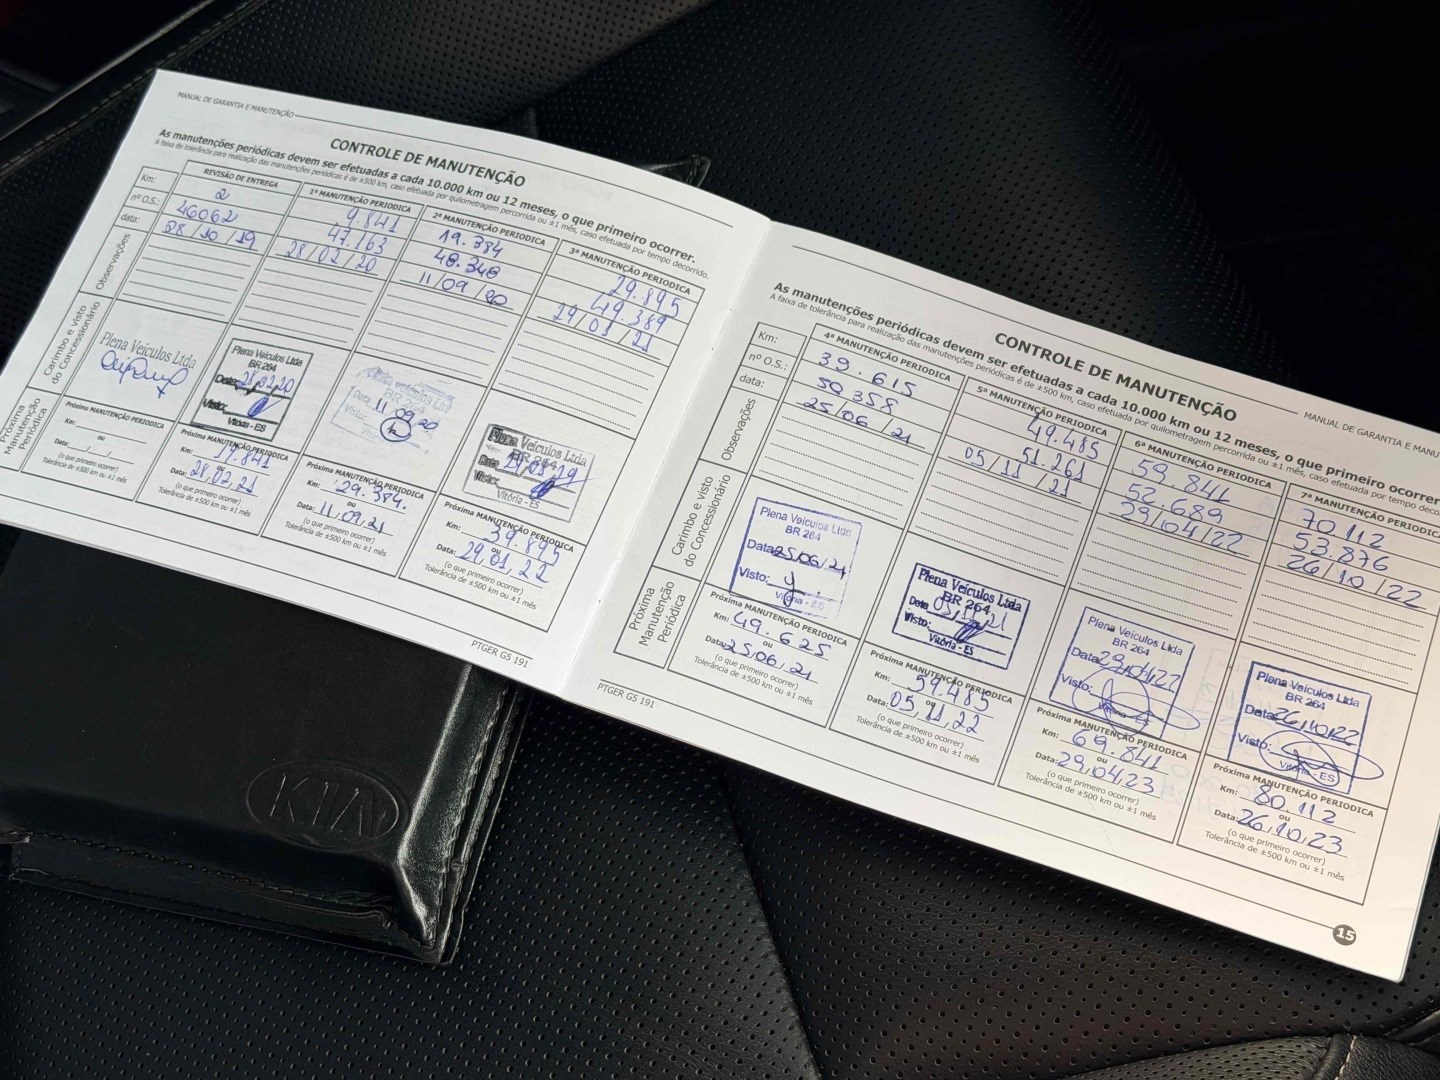 MANUAL DE GARANTIA E MANUTENÇÃO
CONTROLE DE MANUTENÇÃO
As manutenções periódicas devem ser efetuadas a cada 10.000 km ou 12 meses, o que primeiro ocorrer.
A faixa de tolerância para realização das manutenções periódicas é de ±500 km, caso efetuada por quilometragem percorrida ou ±1 mês, caso efetuada por tempo decorrido.
REVISÃO DE ENTREGA
1ª MANUTENÇÃO PERIODICA
2ª MANUTENÇÃO PERIODICA
3ª MANUTENÇÃO PERIODICA
Km: 2 9.841 19.384 29.895
nº O.S.: 46062 47.163 48.348 49.389
data: 28/10/19 28/02/20 11/09/20 29/01/21
Observações
Carimbo e visto do Concessionário
Plena Veículos Ltda
Plena Veículos Ltda
BR 264
Data: 28/02/20
Visto:
Vitória - ES
11 09 20
Plena Veículos Ltda
BR 264
Data
Visto:
Vitória - ES
Próxima Manutenção Periódica
Próxima MANUTENÇÃO PERIODICA
Km:
ou
Data:
(o que primeiro ocorrer)
Tolerância de ±500 km ou ±1 mês
Próxima MANUTENÇÃO PERIODICA
Km: 19.841
ou
Data: 28,02,21
(o que primeiro ocorrer)
Tolerância de ±500 km ou ±1 mês
Próxima MANUTENÇÃO PERIODICA
Km: 29.384.
ou
Data: 11,09,21
(o que primeiro ocorrer)
Tolerância de ±500 km ou ±1 mês
Próxima MANUTENÇÃO PERIODICA
Km: 39.895
ou
Data: 29,01,22
(o que primeiro ocorrer)
Tolerância de ±500 km ou ±1 mês
PTGER G5 191
MANUAL DE GARANTIA E MANU
CONTROLE DE MANUTENÇÃO
As manutenções periódicas devem ser efetuadas a cada 10.000 km ou 12 meses, o que primeiro ocorrer
A faixa de tolerância para realização das manutenções periódicas é de ±500 km, caso efetuada por quilometragem percorrida ou ±1 mês, caso efetuada por tempo deco
4ª MANUTENÇÃO PERIODICA
5ª MANUTENÇÃO PERIODICA
6ª MANUTENÇÃO PERIODICA
7ª MANUTENÇÃO PERIODICA
Km: 39.615 49.485 59.841 70.112
nº O.S.: 50358 51.261 52.689 53.876
data: 25/06/21 05/11/21 29/04/22 26/10/22
Observações
Carimbo e visto do Concessionário
Plena Veículos Ltda
BR 264
Data: 25/06/21
Visto:
Vitória - ES
Plena Veículos Ltda
BR 264
Data 05/11/21
Visto:
Vitória - ES
Plena Veículos Ltda
BR 264
Data: 29/04/22
Visto:
Plena Veículos Ltda
BR 264
Data: 26/10/22
Visto:
Vitória - ES
Próxima Manutenção Periódica
Próxima MANUTENÇÃO PERIODICA
Km: 49.625
ou
Data: 25,06,21
(o que primeiro ocorrer)
Tolerância de ±500 km ou ±1 mês
Próxima MANUTENÇÃO PERIODICA
Km: 59.485
ou
Data: 05,11,22
(o que primeiro ocorrer)
Tolerância de ±500 km ou ±1 mês
Próxima MANUTENÇÃO PERIODICA
Km: 69.841
ou
Data: 29,04,23
(o que primeiro ocorrer)
Tolerância de ±500 km ou ±1 mês
Próxima MANUTENÇÃO PERIODICA
Km: 80.112
ou
Data: 26,10,23
(o que primeiro ocorrer)
Tolerância de ±500 km ou ±1 mês
PTGER G5 191
15
KIA